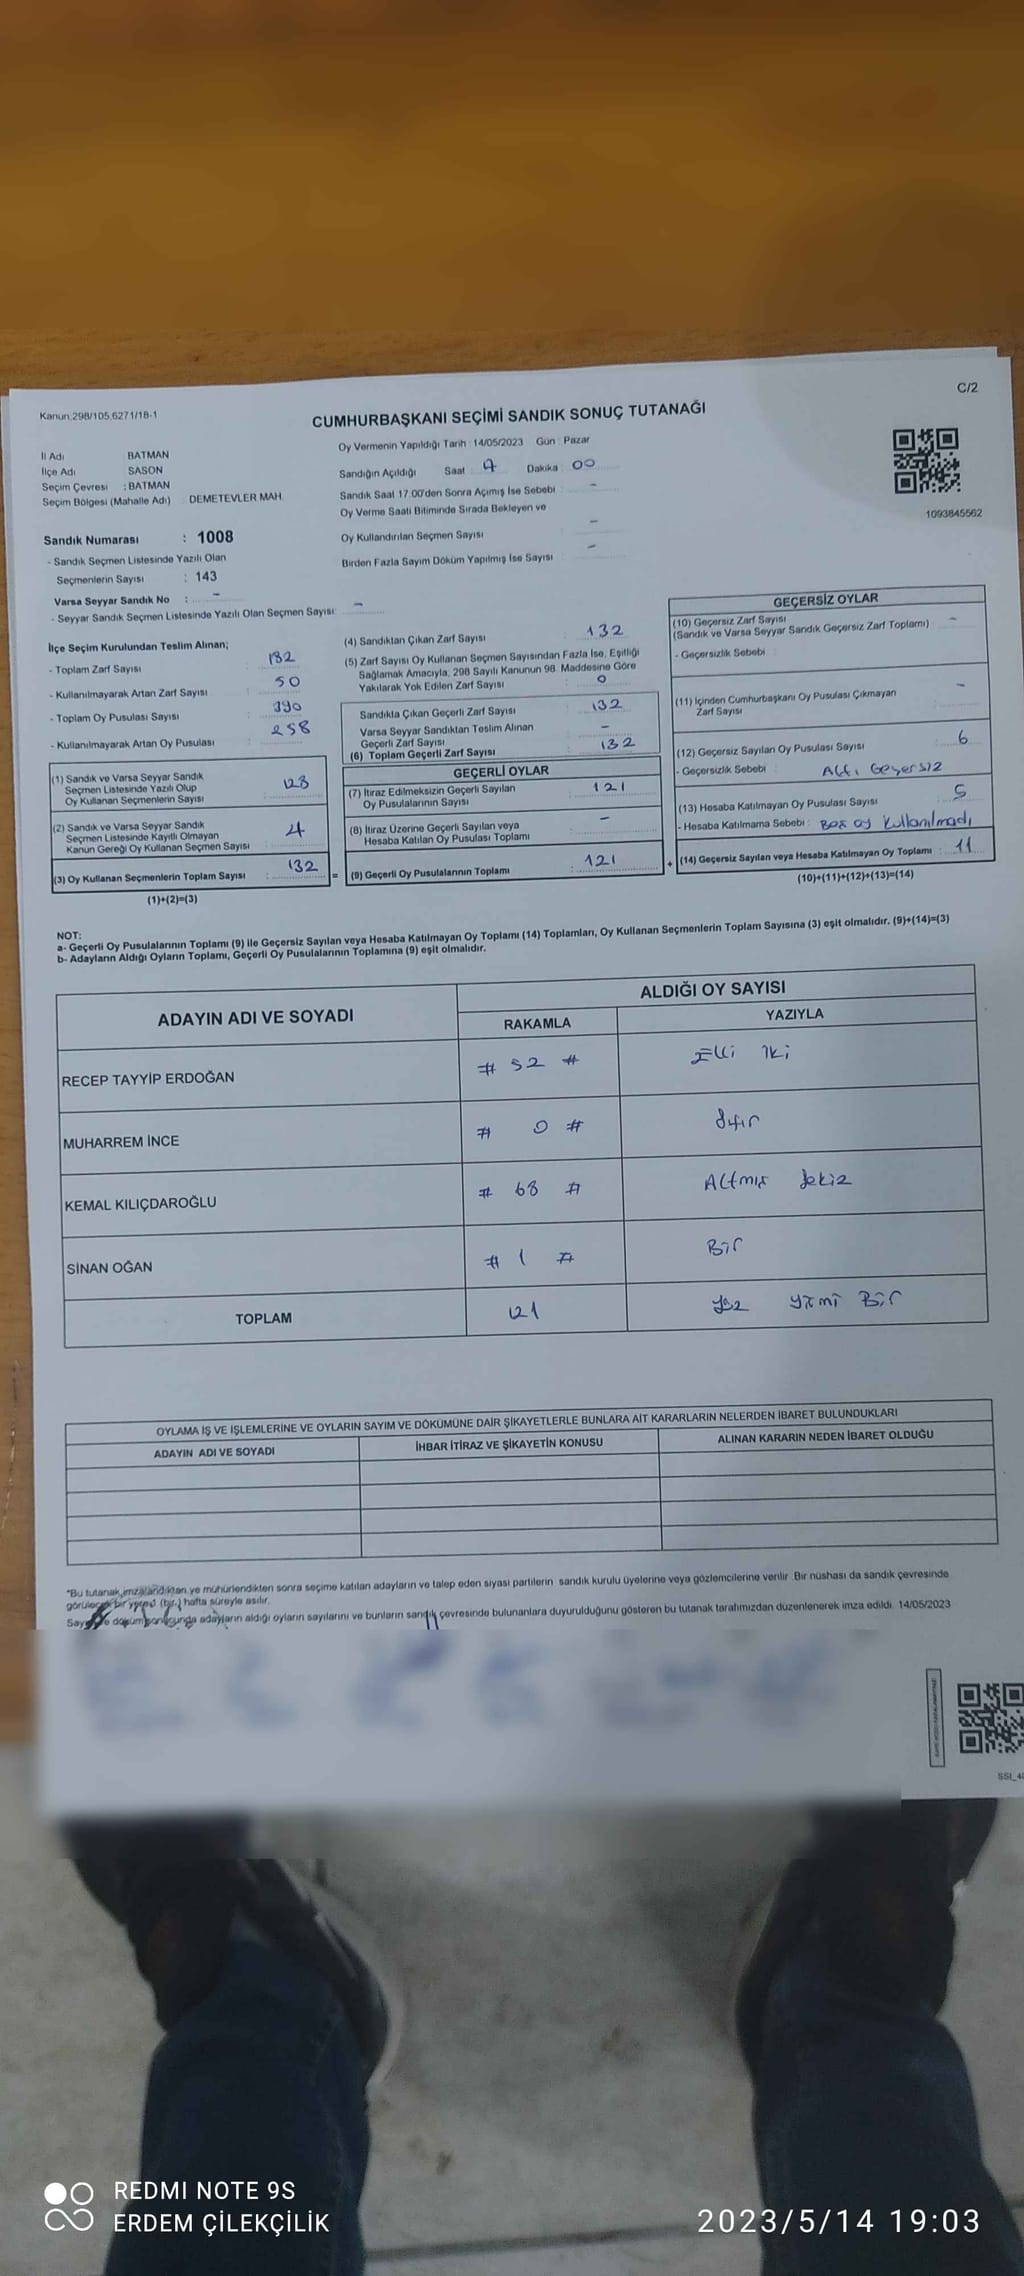 C/2
Kanun:298/105,6271/18-1
CUMHURBAŞKANI SEÇİMİ SANDIK SONUÇ TUTANAĞI
İl Adı BATMAN
İlçe Adı SASON
Seçim Çevresi : BATMAN
Seçim Bölgesi (Mahalle Adı) DEMETEVLER MAH.
Oy Vermenin Yapıldığı Tarih : 14/05/2023 Gün : Pazar
Sandığın Açıldığı Saat Dakika : 00
Sandık Saat 17:00'den Sonra Açımış İse Sebebi : -
Oy Verme Saati Bitiminde Sırada Bekleyen ve
Oy Kullandırılan Seçmen Sayısı -
Birden Fazla Sayım Döküm Yapılmış İse Sayısı : -
1093845562
Sandık Numarası : 1008
- Sandık Seçmen Listesinde Yazılı Olan
Seçmenlerin Sayısı : 143
Varsa Seyyar Sandık No : -
- Seyyar Sandık Seçmen Listesinde Yazılı Olan Seçmen Sayısı: -
İlçe Seçim Kurulundan Teslim Alınan;
- Toplam Zarf Sayısı : 182
- Kullanılmayarak Artan Zarf Sayısı : 50
- Toplam Oy Pusulası Sayısı :
- Kullanılmayarak Artan Oy Pusulası : 258
(1) Sandık ve Varsa Seyyar Sandık
Seçmen Listesinde Yazılı Olup
Oy Kullanan Seçmenlerin Sayısı : 128
(2) Sandık ve Varsa Seyyar Sandık
Seçmen Listesinde Kayıtlı Olmayan
Kanun Gereği Oy Kullanan Seçmen Sayısı : 4
(3) Oy Kullanan Seçmenlerin Toplam Sayısı : 132 =
(1)+(2)=(3)
(4) Sandıktan Çıkan Zarf Sayısı : 132
(5) Zarf Sayısı Oy Kullanan Seçmen Sayısından Fazla İse, Eşitliği
Sağlamak Amacıyla, 298 Sayılı Kanunun 98. Maddesine Göre
Yakılarak Yok Edilen Zarf Sayısı : 0
Sandıkta Çıkan Geçerli Zarf Sayısı : 132
Varsa Seyyar Sandıktan Teslim Alınan
Geçerli Zarf Sayısı : -
(6) Toplam Geçerli Zarf Sayısı : 132
GEÇERLİ OYLAR
(7) İtiraz Edilmeksizin Geçerli Sayılan
Oy Pusulalarının Sayısı : 121
(8) İtiraz Üzerine Geçerli Sayılan veya
Hesaba Katılan Oy Pusulası Toplamı : -
(9) Geçerli Oy Pusulalarının Toplamı : 121 +
GEÇERSİZ OYLAR
(10) Geçersiz Zarf Sayısı
(Sandık ve Varsa Seyyar Sandık Geçersiz Zarf Toplamı) : -
- Geçersizlik Sebebi :
(11) İçinden Cumhurbaşkanı Oy Pusulası Çıkmayan
Zarf Sayısı : -
(12) Geçersiz Sayılan Oy Pusulası Sayısı : 6
- Geçersizlik Sebebi : Altı Geçersiz
(13) Hesaba Katılmayan Oy Pusulası Sayısı : 5
- Hesaba Katılmama Sebebi : Boş oy kullanılmadı
(14) Geçersiz Sayılan veya Hesaba Katılmayan Oy Toplamı : 11
(10)+(11)+(12)+(13)=(14)
NOT:
a- Geçerli Oy Pusulalarının Toplamı (9) ile Geçersiz Sayılan veya Hesaba Katılmayan Oy Toplamı (14) Toplamları, Oy Kullanan Seçmenlerin Toplam Sayısına (3) eşit olmalıdır. (9)+(14)=(3)
b- Adayların Aldığı Oyların Toplamı, Geçerli Oy Pusulalarının Toplamına (9) eşit olmalıdır.
ADAYIN ADI VE SOYADI
ALDIĞI OY SAYISI
RAKAMLA YAZIYLA
RECEP TAYYİP ERDOĞAN # 52 # Elli iki
MUHARREM İNCE # 0 # Sıfır
KEMAL KILIÇDAROĞLU # 68 # Altmış Sekiz
SİNAN OĞAN # 1 # Bir
TOPLAM 121 Yüz Yirmi Bir
OYLAMA İŞ VE İŞLEMLERİNE VE OYLARIN SAYIM VE DÖKÜMÜNE DAİR ŞİKAYETLERLE BUNLARA AİT KARARLARIN NELERDEN İBARET BULUNDUKLARI
ADAYIN ADI VE SOYADI İHBAR İTİRAZ VE ŞİKAYETİN KONUSU ALINAN KARARIN NEDEN İBARET OLDUĞU
*Bu tutanak imzalandıktan ve mühürlendikten sonra seçime katılan adayların ve talep eden siyasi partilerin sandık kurulu üyelerine veya gözlemcilerine verilir. Bir nüshası da sandık çevresinde
bir (bir) hafta süreyle asılır.
adayların aldığı oyların sayılarını ve bunların sandık çevresinde bulunanlara duyurulduğunu gösteren bu tutanak tarafımızdan düzenlenerek imza edildi. 14/05/2023
REDMI NOTE 9S
ERDEM ÇİLEKÇİLİK
2023/5/14 19:03